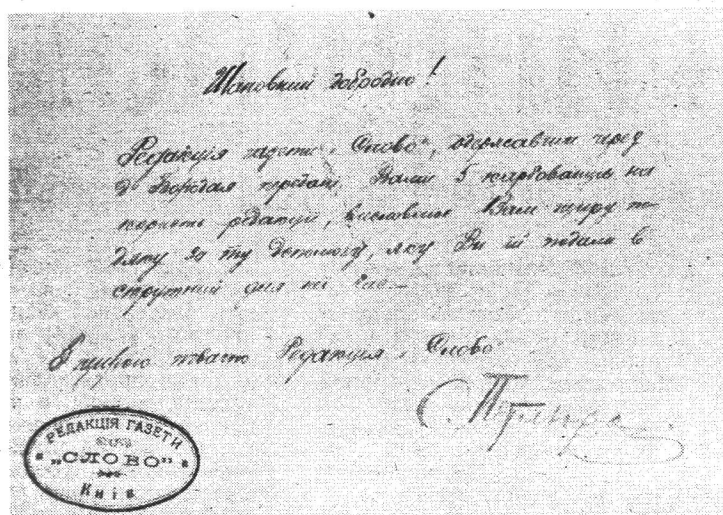 Шановний добродію!
Редакція газети „Слово", одержавши через
д. Бородая передані Вами 5 карбованців на
користь редакції, висловлює Вам щиру по-
дяку за ту допомогу, яку Ви їй подали в
скрутний для неї час.—
З щирою повагою Редакція „Слово"
РЕДАКЦІЯ ГАЗЕТИ
„СЛОВО"
Київ